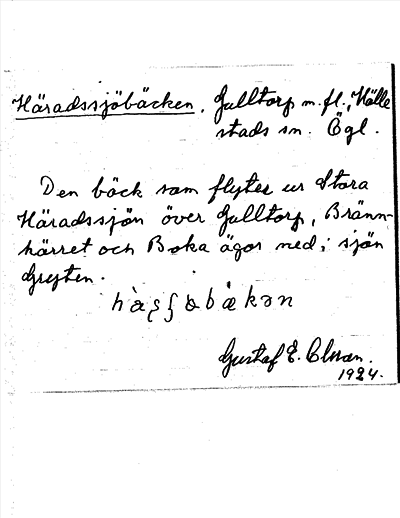 Häradssjöbäcken, Gulltorp m.fl., Hälle
stads sn. Ögl.
Den bäck som flyter ur Stora
Häradssjön över Gulltorp, Bränn-
kärret och Boka ägor ned i sjön
Gryten.
Gustaf E.
1924.